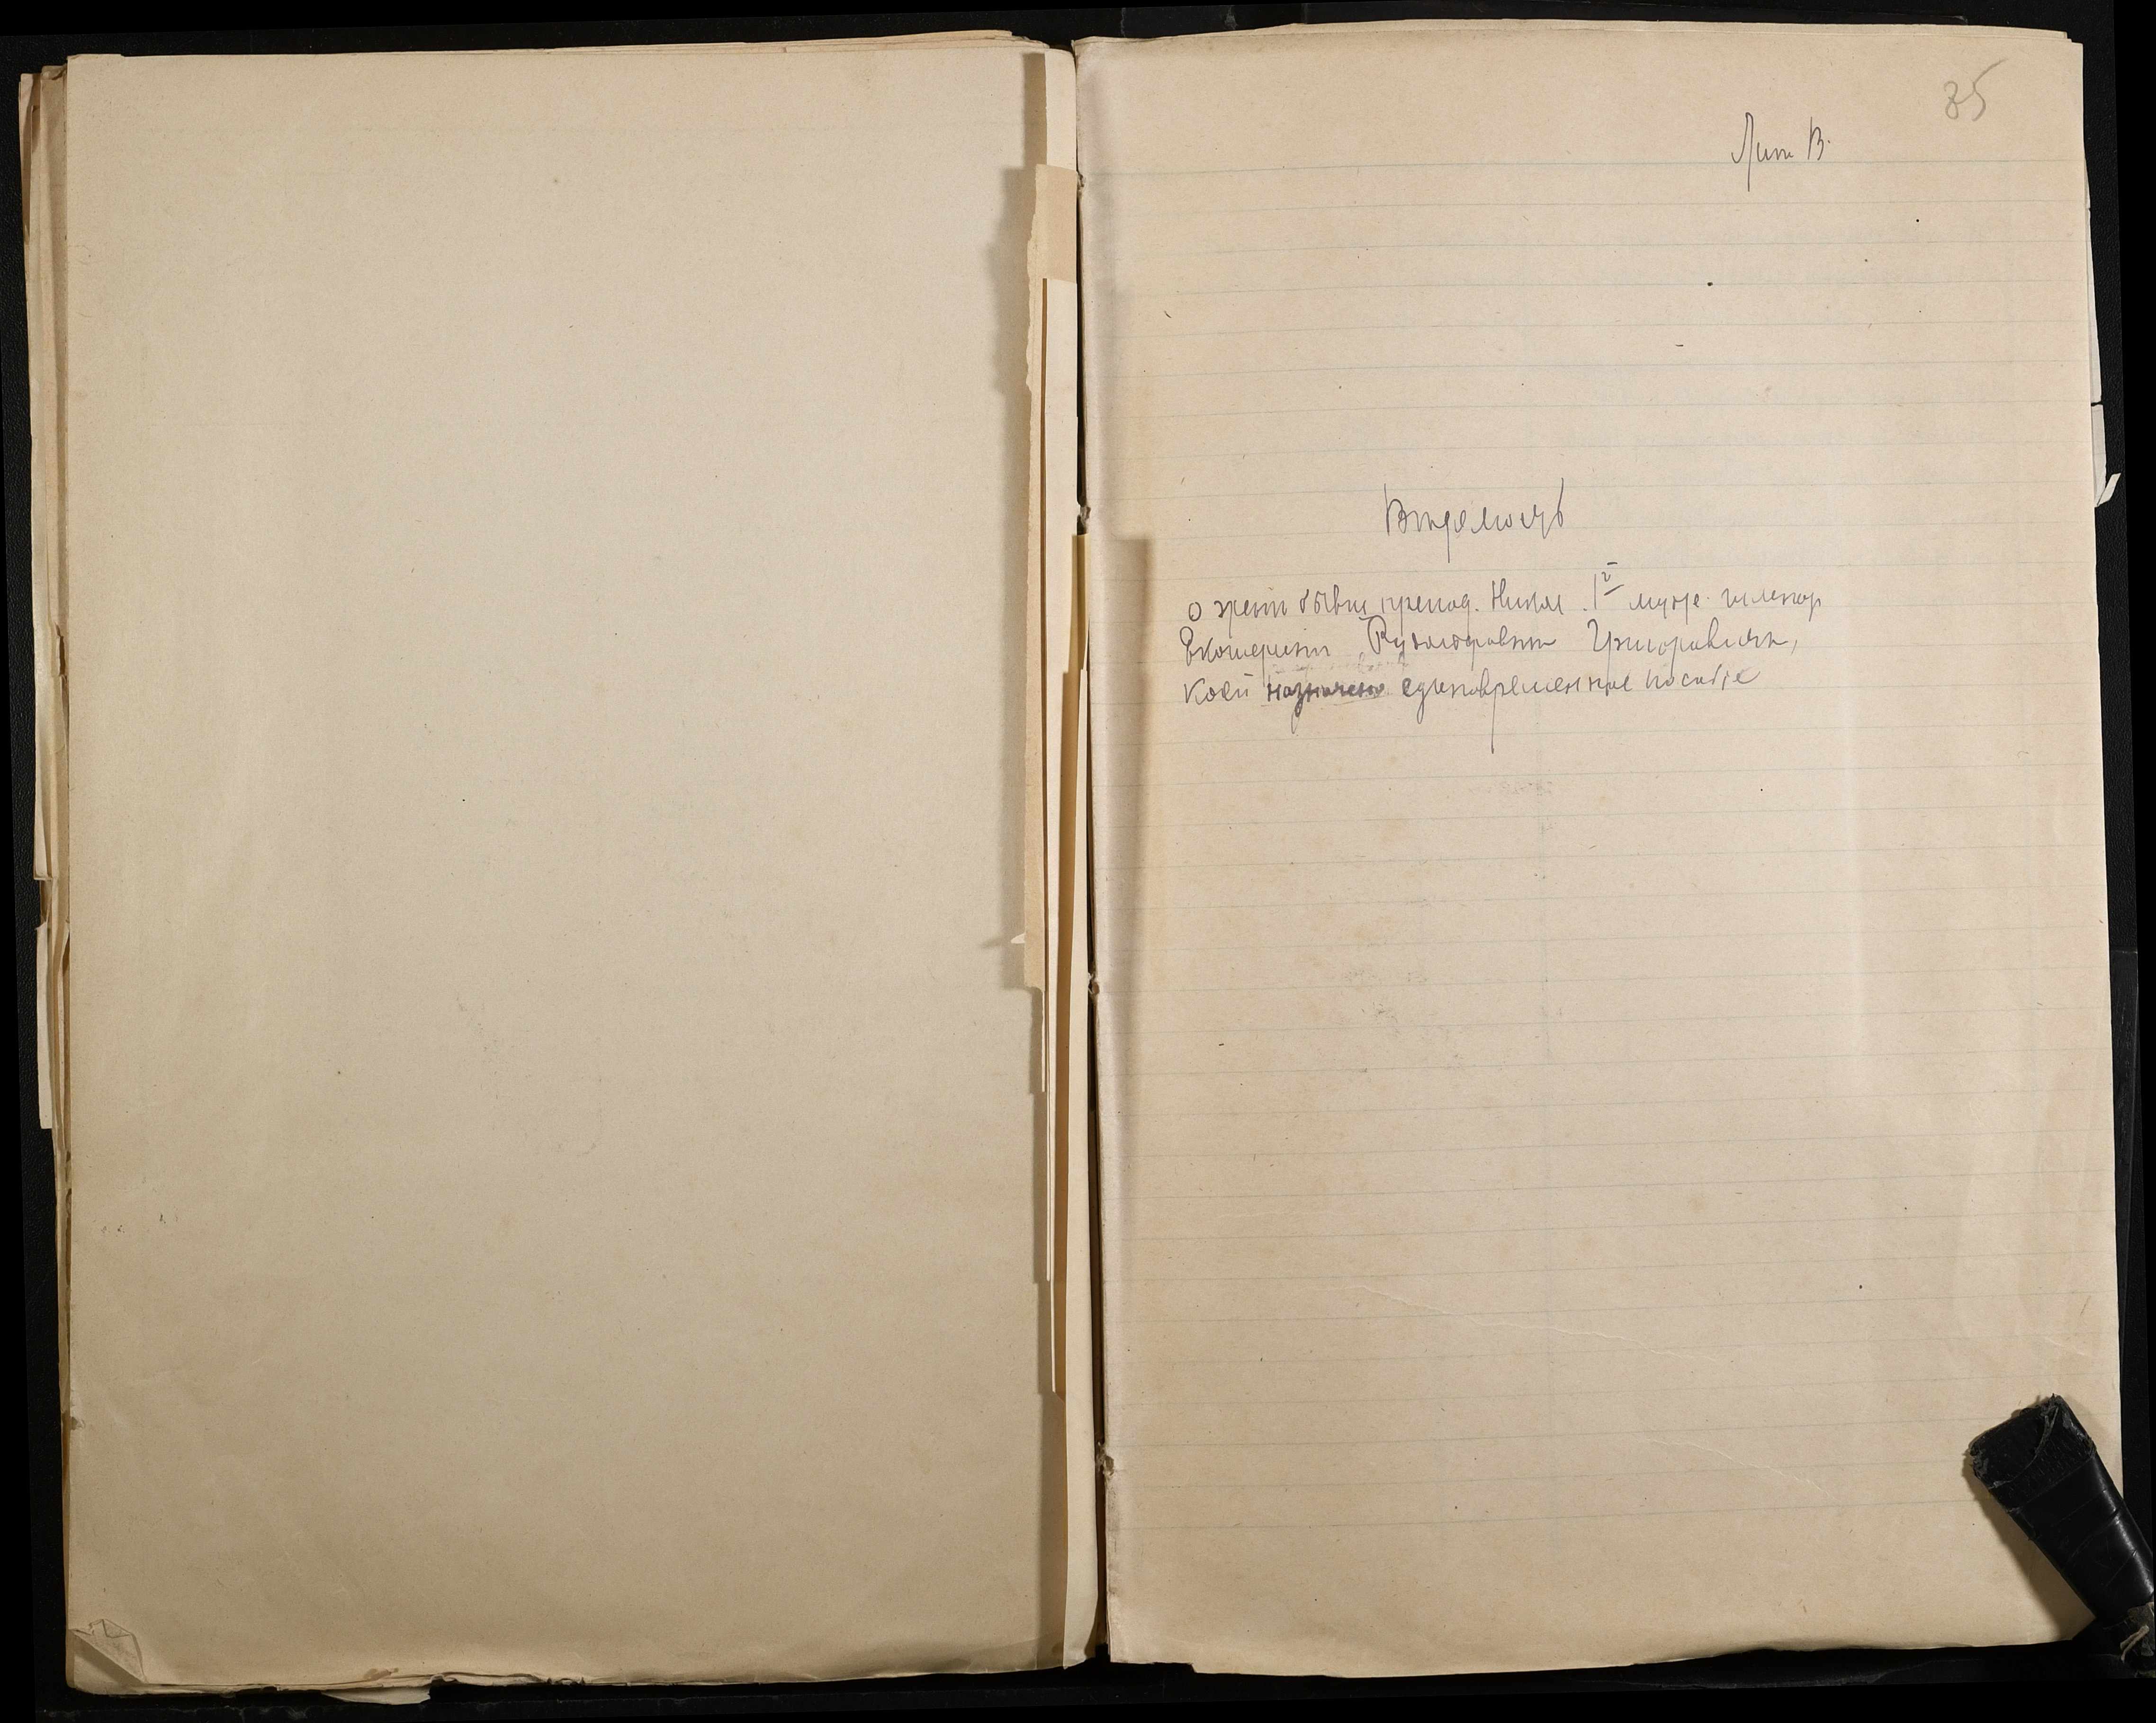 35
Лит В.
Ведомость
о жен бывш препод. Никол. 1й муж. гимназ
Екатерине Рудольфовне Григоревич,
коей назначено единовременное пособiе